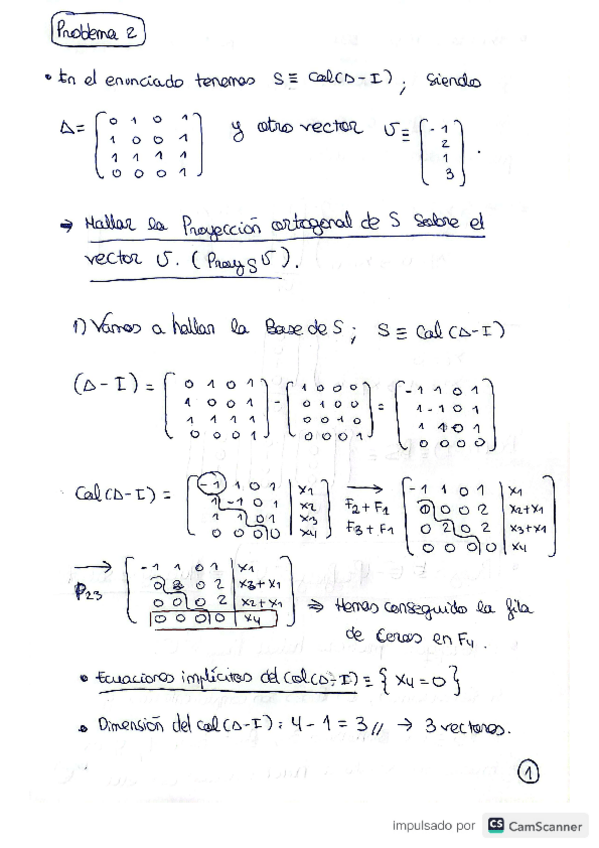 Problema 2
• En el enunciado tenemos S ≡ Col(A-I); siendo
A = [0 1 0 1; 1 0 0 1; 1 1 1 1; 0 0 0 1] y otro vector v ≡ [-1; 2; 1; 3].
→ Hallar la Proyección ortogonal de S sobre el
vector v. (Proy S v).
1) Vamos a hallar la Base de S; S ≡ Col(A-I)
(A-I) = [0 1 0 1; 1 0 0 1; 1 1 1 1; 0 0 0 1] - [1 0 0 0; 0 1 0 0; 0 0 1 0; 0 0 0 1] = [-1 1 0 1; 1 -1 0 1; 1 1 0 1; 0 0 0 0]
Col(A-I) = [-1 1 0 1 | x1; 1 -1 0 1 | x2; 1 1 0 1 | x3; 0 0 0 0 | x4] → F2+F1 F3+F1 [-1 1 0 1 | x1; 0 0 0 2 | x2+x1; 0 2 0 2 | x3+x1; 0 0 0 0 | x4]
→ P23 [-1 1 0 1 | x1; 0 2 0 2 | x3+x1; 0 0 0 2 | x2+x1; 0 0 0 0 | x4] ⇒ Hemos conseguido la fila
de ceros en F4.
• Ecuaciones implícitas del Col(A-I) ≡ {x4=0}
• Dimensión del col(A-I): 4-1=3// → 3 vectores.
1
impulsado por CS CamScanner